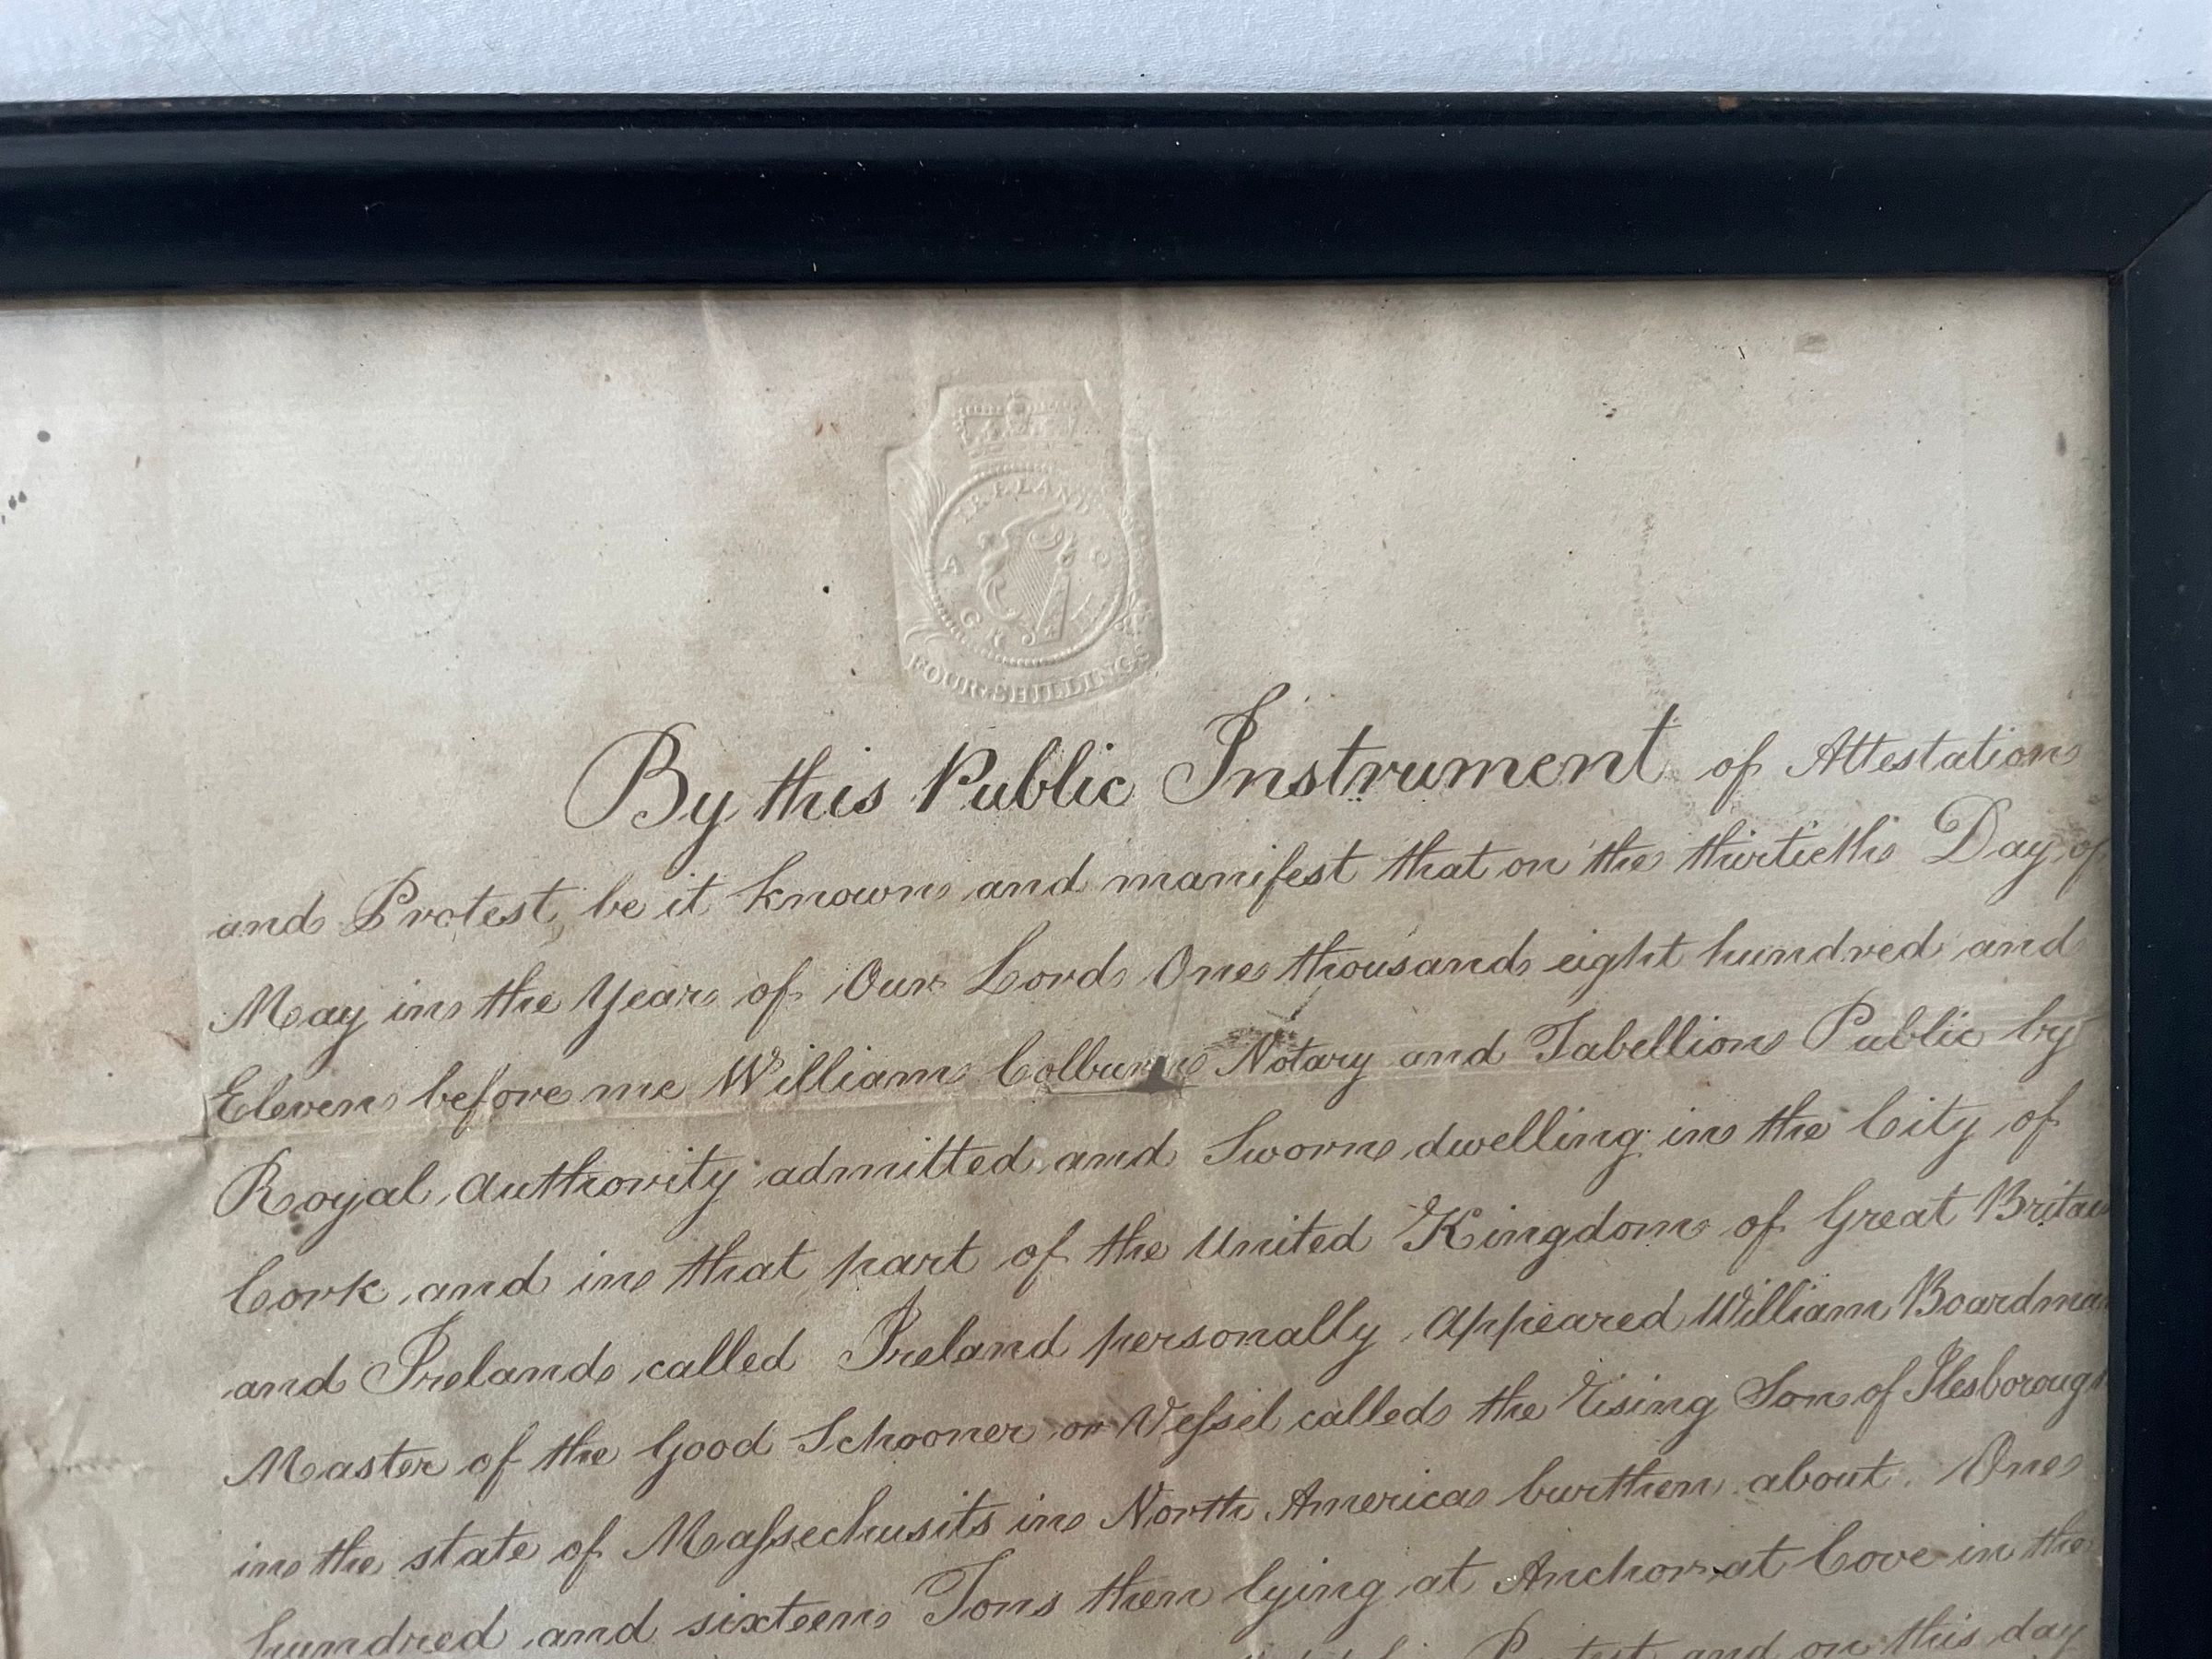 IRELAND
FOUR SHILLINGS
By this Public Instrument of Attestation
and Protest, be it known and manifest that on the thirtieth Day of
May in the Year of Our Lord One thousand eight hundred and
Eleven before me William Colburne Notary and Tabellion Public by
Royal Authority admitted and Sworn dwelling in the City of
Cork and in that part of the United Kingdom of Great Britain
and Ireland called Ireland personally Appeared William Boardman
Master of the Good Schooner or Vessel called the Rising Son of Ilesborough
in the state of Massechusits in North America burthen about One
hundred and sixteen Tons then lying at Anchor at Cove in the
Protest and on this day